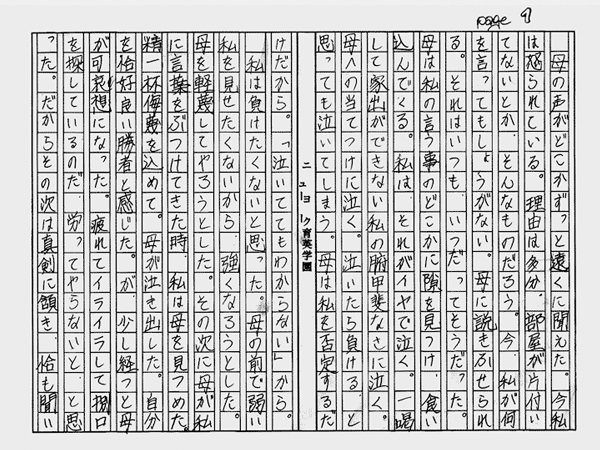 page 9
母の声がどこかずっと遠くに聞えた。今私
は怒られている。理由は多分、部屋が片付い
てないとか、そんなものだろう。今、私が何
を言ってもしょうがない。母に説きふせられ
る。それはいつも、いつだってそうだった。
母は私の言う事のどこかに隙を見つけ、食い
込んでくる。私は、それがイヤで泣く。一喝
して家出ができない私の腑甲斐なさに泣く。
母への当てつけに泣く。泣いたら負ける、と
思っても泣いてしまう。母は私を否定するだ
ニューヨーク育英学園
けだから。「泣いててもわからない」から。
私は負けたくないと思った。母の前で弱い
私を見せたくないから、強くなろうとした。
母を軽蔑してやろうとした。その次に母が私
に言葉をぶつけてきた時、私は母を見つめた。
精一杯侮蔑を込めて。母が泣き出した。自分
を恰好良い勝者と感じた。が、少し経つと母
が可哀想になった。疲れてイライラして捌口
を探しているのだ、労ってやらないと、と思
った。だからその次は真剣に頷き、恰も聞い